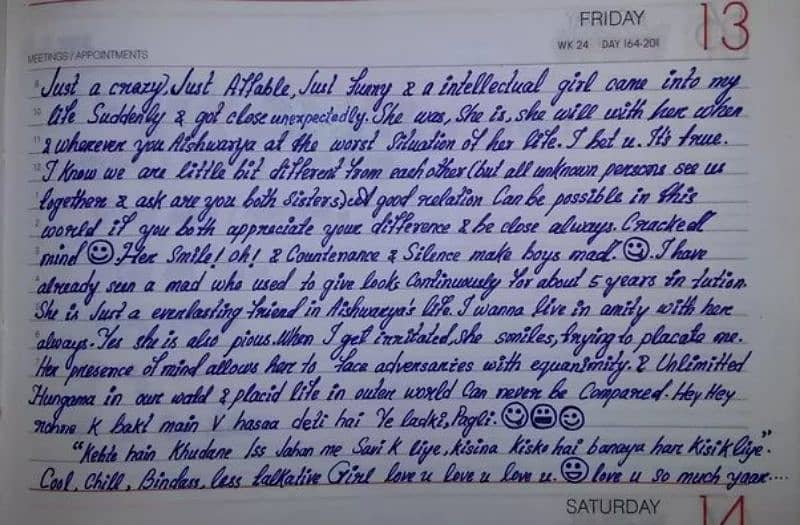 FRIDAY 13
WK 24 DAY 164-201
MEETINGS / APPOINTMENTS
9 Just a crazy, Just Affable, Just funny & a intellectual girl came into my
10 life Suddenly & got close unexpectedly. She was, She is, she will with her when
11 & wherever you Aishwarya at the worst Situation of her life. I bet u. It's true.
12 I Know we are little bit different from each other (but all unknown persons see us
1 together & ask are you both Sisters) good relation Can be possible in this
2 world if you both appreciate your difference & be close always. Cracked
3 mind 🙂. Her Smile! Oh! & Countenance & Silence make boys mad. 😋. I have
4 already seen a mad who used to give looks Continuously for about 5 years in tution.
5 She is Just a everlasting friend in Aishwarya's life. I wanna live in amity with her
6 always. Yes she is also pious. When I get irritated, she smiles, trying to placate me.
Her presence of mind allows her to face adversaries with equanimity. & Unlimitted
Hungama in our wold & placid life in outer world Can never be Compared. Hey Hey
rohne K bakt main V hasaa deti hai Ye ladki, Pagli. 😋😀🙂
"Kehte hain Khudane Iss Jahan me Savi K liye, kisina kisko hai banaya har Kisi K liye".
Cool, Chill, Bindass, less talkative Girl love u love u love u. 😀 love u so much yaar....
SATURDAY 14